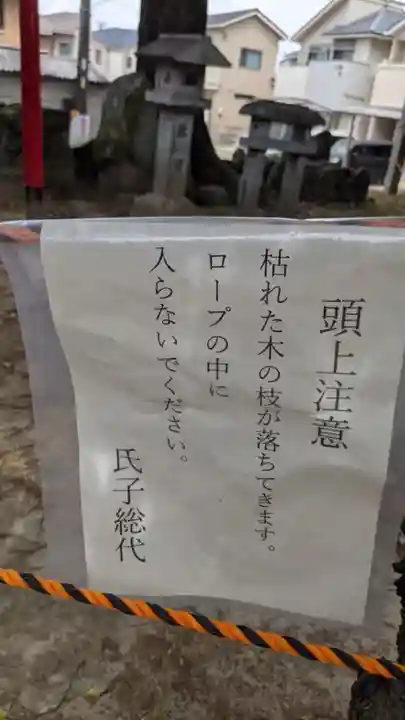 頭上注意
枯れた木の枝が落ちてきます。
ロープの中に
入らないでください。
氏子総代